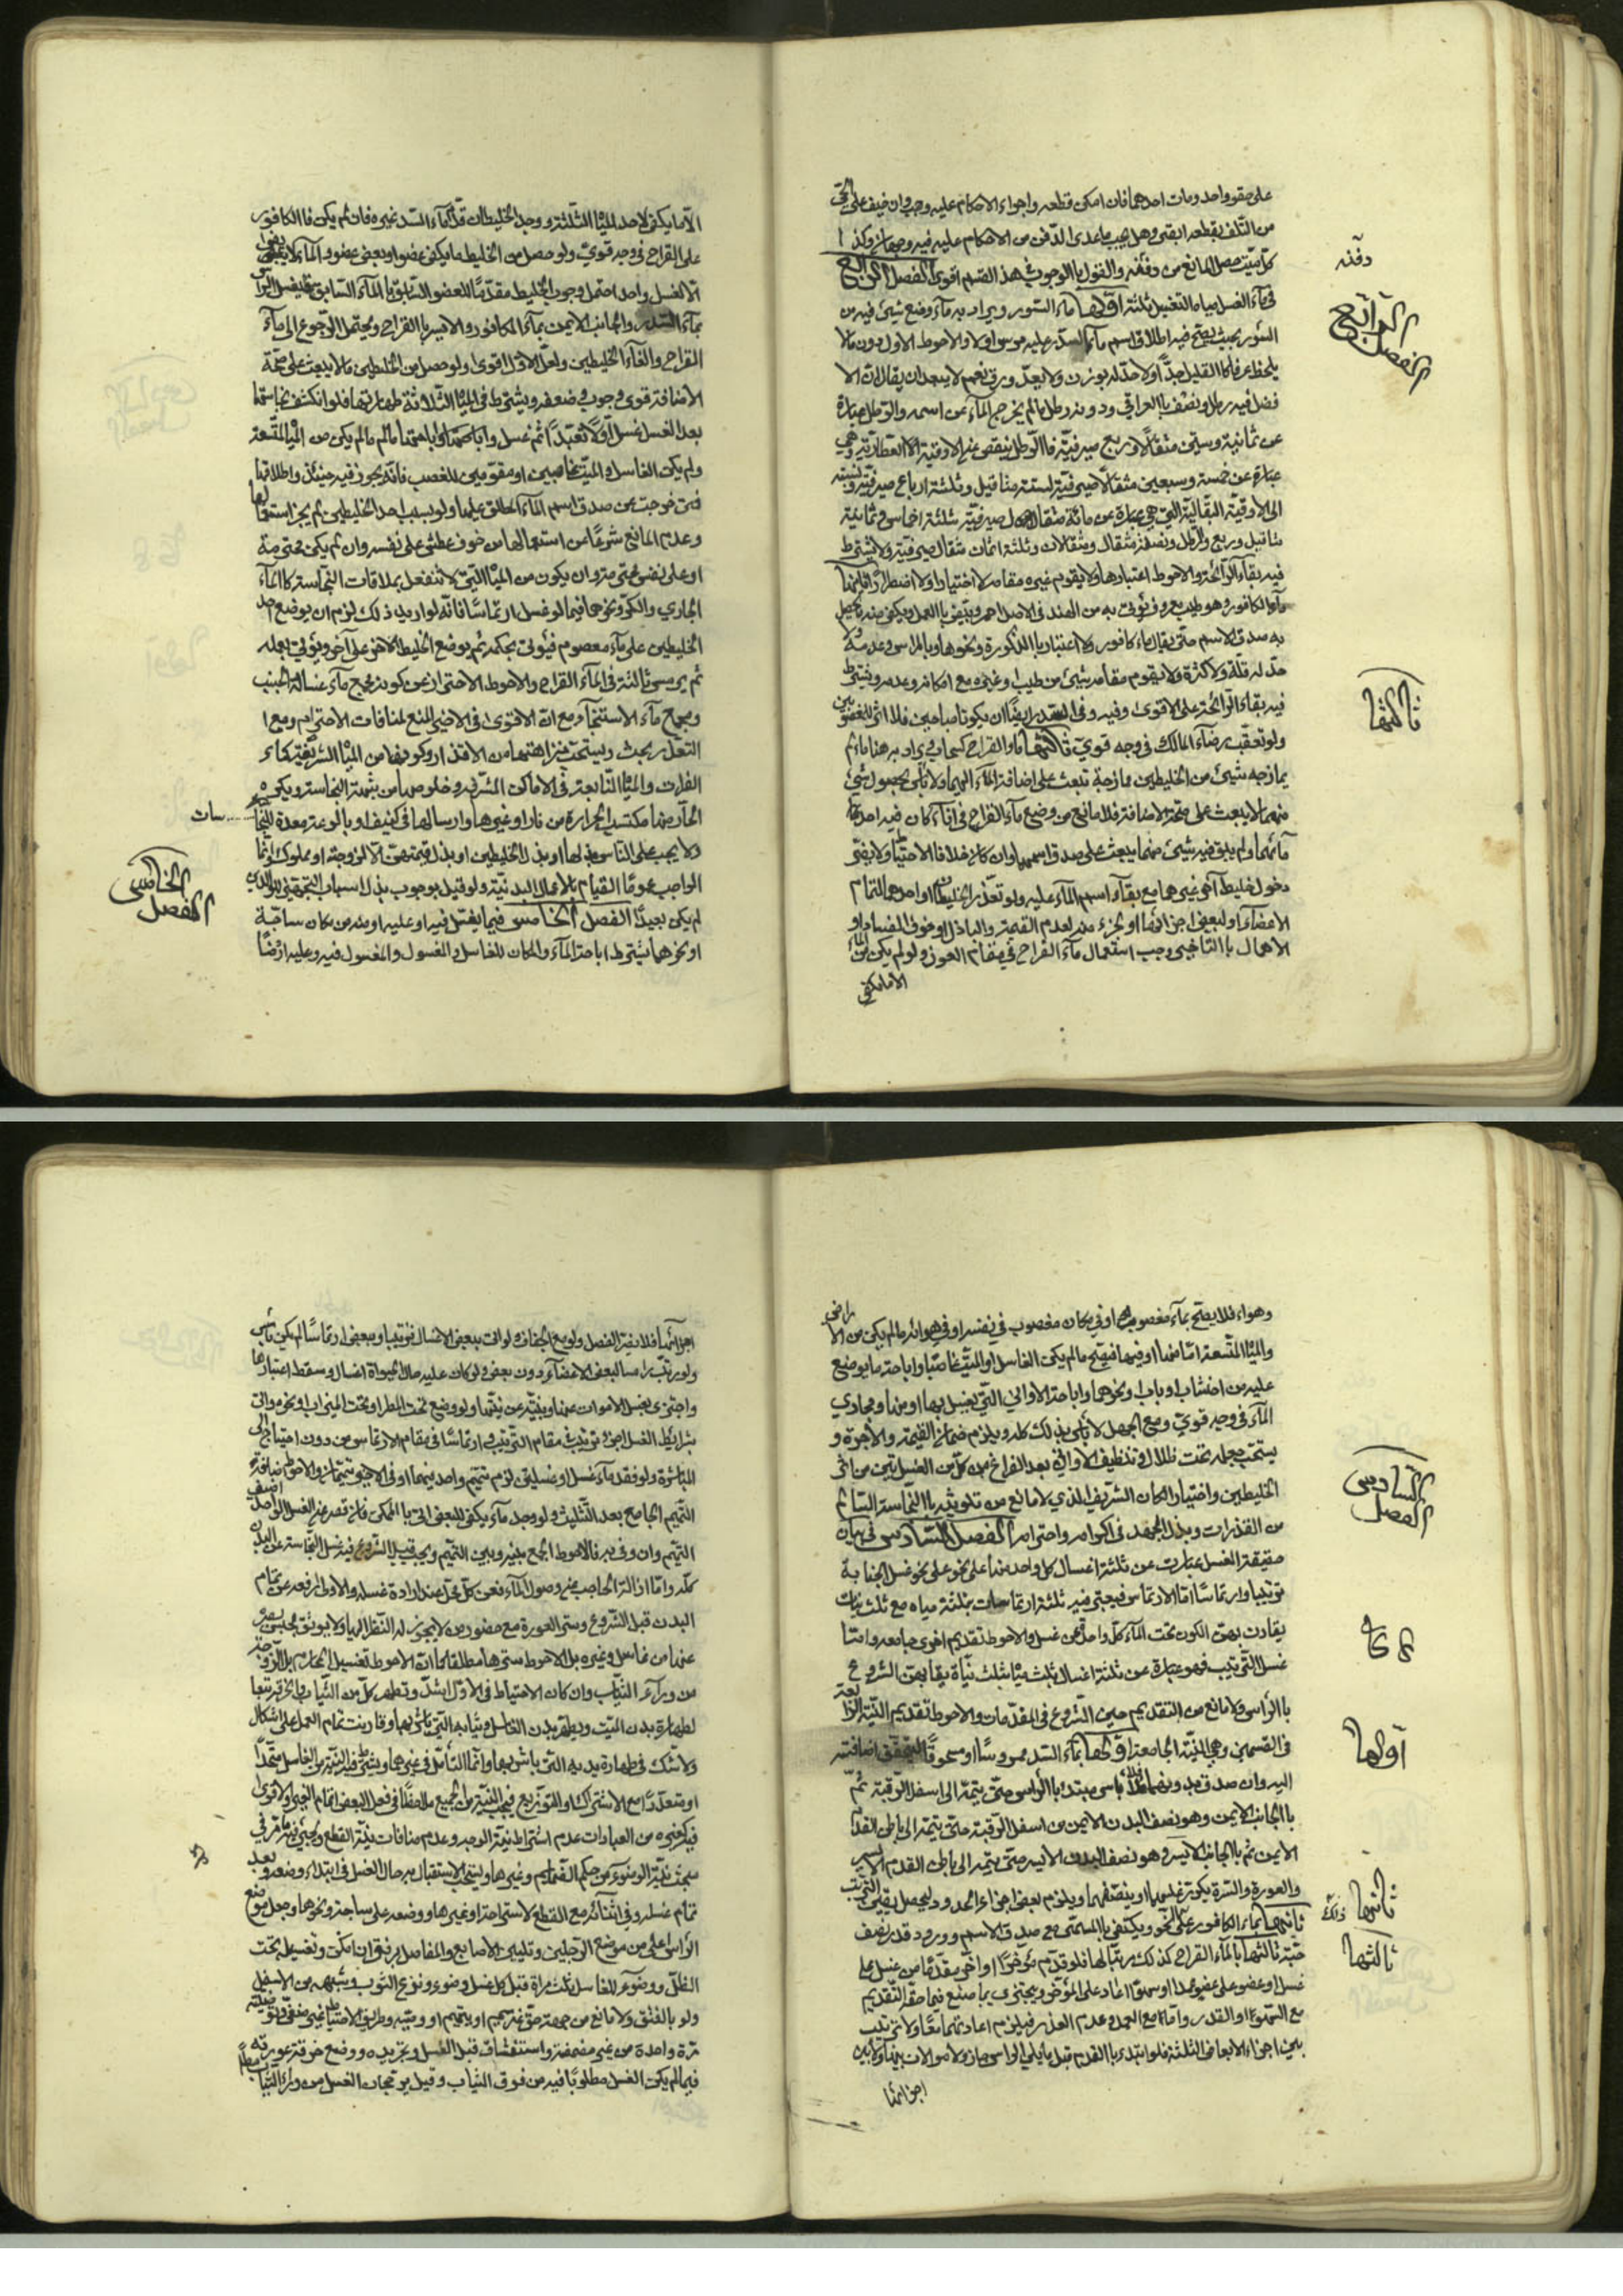 على حقو واحد ومات احدهما فان امكن قطعه واجراء الاحكام عليه وجب وان خيف على الحي
من التلف بقطعه ابقى وهل يجب ما عدى الدفن من الاحكام عليه فيه وجهان وكذا
كل ميت حصل المانع من دفنه والقول بالوجوب في هذا القسم اقوى الفصل الرابع
دفنه
الفصل الرابع
في ماء الغسل مياه التغسيل ثلثة اولها ماء السدر ويراد به ماء وضع شيئ فيه من
السدر بحيث يصح فيه اطلاق اسم ماء السدر عليه مرس اولا والاحوط الاول دون مالا
يلحظ عرفا كالقليل جدا ولا حد له بوزن ولا بعد ورق نعم لا يبعد ان يقال ان الا
فضل فيه رطل ونصف بالعراقي ودونه رطل مالم يخرج الماء عن اسمه والرطل عبارة
عن ثمانية وستين مثقالا وربع صيرفية فالرطل ينقص عن الاوقية الاالعطارية وهي
عبارة عن خمسة وسبعين مثقالا صيرفية لستة مثاقيل وثلثة ارباع صيرفية ونسبته
الى الاوقية البقالية التي هي عبارة عن مائة مثقال صيرفية ثلثة اخماس وثمانية
مثاقيل وربع والرطل ونصفه مثقال ومثقالات وثلثة اثمان مثقال صيرفية ولا يشترط
فيه بقاء الرائحة والاحوط اعتبارها ولا يقوم غيره مقامه لا اختيارا ولا اضطرارا ثانيها
ماء الكافور وهو طيب معروف يؤتى به من الهند في الاصل احمر ويبيض بالعمل ويكفي منه ما يحصل
به صدق الاسم حتى يقال ماء كافور ولا اعتبار بالذكورة ونحوها وبالمرس وعدمه ولا
حد له قلة ولا كثرة ولا يقوم مقامه شيئ من طيب او غيره مع امكانه وعدمه ويشترط
فيه بقاء الرائحة على الاقوى وفيه وفي السدر ايضا ان يكونا مباحين فلا اثر للمغصوبين
ولو تعقب رضاء المالك في وجه قوي ثالثها ماء القراح كسحاب ويراد به هنا ماء لم
ثالثها
يمازجه شيئ من الخليطين ممازجة تبعث على اضافة الماء اليهما ولا باس بحصول شيئ
منهما لا يبعث على صحة الاضافة فلا مانع من وضع ماء القراح في اناء كان فيه احد
مائهما ولم يبق فيه شيئ منهما يبعث على صدق اسمهما وان كان خلاف الاحتياط ولا يضر
دخول خليط آخر غيرهما مع بقاء اسم الماء عليه ولو تعذر الخليطان او احدهما لتمام
الاعضاء او لبعض اجزائها او لجزء منه لعدم القيمة والباذل او خوف الفساد او
الاهمال بالتاخير وجب استعمال ماء القراح في مقام العوز ولو لم يكن من الماء
الا ما يكفي
الا ما يكفي لاحد المياه الثلثة ووجد الخليطان قدم ماء السدر على غيره فان لم يكن فالكافور
على القراح في وجه قوي ولو حصل من الخليط ما يكفي عضوا وبعض عضو والماء لا يفي
الا لغسل واحد احتمل وجوب الخليط مقدما للعضو السابق بالماء السابق فيغسل الراس
بماء السدر والجانب الايمن بماء الكافور والايسر بالقراح ويحتمل الرجوع الى ماء
القراح والغاء الخليطين ولعل الاول اقوى ولو حصل من الخليطين مالا يبعث على صحة
الاضافة قوى وجوب في ضعفه ويشترط في المياه الثلاثة طهارتها فلو انكشف نجاستها
بعد الغسل غسل اولا تعبدا ثم غسل واباحتها او اباحتها مالم يكن من المياه المتسعة
ولم يكن الغاسل والميت غاصبين او مقومين للغصب فانه يجوز فيه حينئذ واطلاقها
فمتى خرجت عن صدق اسم الماء المطلق عليها ولو بسبب احد الخليطين لم يجز استعمالها
وعدم المانع شرعا من استعمالها من خوف عطش على نفسه وان لم يكن محترمة
او على نفس محترمة وان يكون من المياه التي لا تنفعل بملاقات النجاسة كالماء
الجاري والكر ونحوها فيما لو غسل ارتماسا فانه لو اريد ذلك لزم ان يوضع احد
الخليطين على ماء معصوم فيؤتى بحكمه ثم يوضع الخليط الاخر على آخر ويؤتى بعمله
ثم يرمس ثالثة في الماء القراح والاحوط الاحتراز عن كونه مجمع ماء غسالة الجنب
ومجمع ماء الاستنجاء مع ان الاقوى في الاخير المنع لمنافات الاحترام ومع
التعذر بحث ويستحب نزاهتها من الاقذار وكونها من المياه الشريفة كماء
الفرات والمياه النابعة في الاماكن المشرفة وخلوصها من شبهة النجاسة ويكره
الحار منها مكتسب الحرارة من نار او غيرها وارسالها في كنيف او بالوعة معدة للنجاسات
ولا يجب على الناس بذلها او بذل الخليطين او بذل قيمتهن الا لزوجة او مملوك وانما
الواجب عموما القيام بالاعمال البدنية ولو قيل بوجوب بذل اسباب التجهيز للوالدين
الفصل الخامس
لم يكن بعيدا الفصل الخامس فيما يغتسل فيه او عليه او منه من مكان ساجة
او نحوهما يشترط اباحة الماء والمكان للغاسل والغسول والمغسول فيه وعليه ارضا
وهواء فلا يصح بماء مغصوب او في مكان مغصوب في نفسه او في هوائه مالم يكن من الاراضي
والمياه المتسعة اما منها او فيها فيصح مالم يكن الغاسل او الميت غاصبا واباحة ما يوضع
عليه من اخشاب او باب او نحوهما واباحة الاواني التي يغسل بها او منها ومجاري
الماء في وجه قوي ومع الجهل لا باس بذلك كله ويلزم ضمان القيمة والاجرة و
يستحب جعله تحت ظلال وتنظيف الاواني بعد الفراغ من كل من الغسلتين من اثر
الخليطين واختيار المكان الشريف الذي لا مانع من تلويثه بالنجاسة السالم
الفصل السادس
من القذرات وبذل الجهد في اكرامه واحترامه الفصل السادس في بيان
حقيقة الغسل عبارة عن ثلثة اغسال كل واحد منها على نحو على نحو غسل الجنابة
ترتيبا وارتماسا اما الارتماس فيعتبر فيه ثلثة ارتماسات بثلثة مياه مع ثلث نيات
يقارن بهن الكون تحت الماء كل واحد عن غسل والاحوط تقديم اخرى جامعة واما
غسل الترتيب فهو عبارة عن ثلثة اغسال بثلث مياه بثلث نيات يقارن بهن الشروع
بالراس ولا مانع من التقديم حين الشروع في المقدمات والاحوط تقديم النية الرابعة
اولها
في القسمين وهي النية الجامعة اولها بماء السدر ممروسا او مسحوقا ليتحقق اضافته
اليه وان صدق بدونهما فلا باس مبتدءا بالراس حتى يتمه الى اسفل الرقبة ثم
بالجانب الايمن وهو نصف البدن الايمن من اسفل الرقبة حتى يتمه الى باطن القدم
الايمن ثم بالجانب الايسر وهو نصف البدن الايسر حتى يتمه الى باطن القدم الايسر
والعورة والسرة يكرر غسلهما او ينصفهما ويلزم بعض اجزاء الحدود ليحصل يقين الترتيب
ثانيها
ثانيها بماء الكافور على النحو ويكتفي بالمسمى مع صدق الاسم وورود قدر نصف
ثالثها
حبة ثالثها بالماء القراح كذلك مرتبا لها فلو قدم مؤخرا او اخر مقدما من غسل على
غسل او عضو على عضو عمدا او سهوا اعاد على المؤخر ويجتزى بما صنع فيما حقه التقديم
مع السهو او القدر واما مع العمد وعدم العذر فيلزم اعادتهما معا ولا ترتيب
بين اجزاء الابعاض الثلثة فلو ابتدء بالقدم قبل ما يلي الراس جاز ولا موالات بينها ولا بين
اجزائها
اجزائها فلا يضر الفصل ولو مع الجفاف ولو اتى ببعض الاغسال ترتيبا وببعض ارتماسا لم يكن باس
ولو رتب رامسا لبعض الاعضاء دون بعض ولو كان عليه حال الحيواة اغسال سقط اعتبارها
واجتزى بغسل الاموات عنها وبنيته عن نيتها ولو وضع تحت المطر او تحت الميزاب او نحوه واتى
بشرائط الغسل اجزء ترتيبا في مقام الترتيب وارتماسا في مقام الارتماس من دون احتياج الى
المباشرة ولو فقد ماء غسل او غسلين لزم تيمم واحد بينهما او في الاخير تيممان والاحوط اضافة
التيمم الجامع بعد التثليث ولو وجد ماء يكفي للبعض اتى بالممكن فان قصر عن الغسل الواحد اضيف
التيمم وان وفى به فالاحوط الجمع بينه وبين التيمم ويجب قبل الشروع فيه غسل النجاسة عن البدن
كله واما ازالة الحاجب عن وصول الماء فعن كل محل عند ارادة غسله والاولى رفعه عن تمام
البدن قبل الشروع وستر العورة مع حضور من لا يجوز له النظر اليها ولا يوثق بحبس بصره
عنها من غاسل وغيره بل الاحوط سترها مطلقا كما ان الاحوط تغسيل المحارم بل الزوجة
من وراء الثياب وان كان الاحتياط في الاول اشد وتطهر كل من الثياب والخرقة تبعا
لطهارة بدن الميت ويطهر بدن الغاسل وثيابه التي باشر بها وقارنت تمام العمل على اشكال
ولا شك في طهارة يديه التي باشر بها وانما التامل في غيرهما ويشترط فيه النية من الغاسل متحدا
او متعددا مع الاشتراك والتوزيع فيجب النية من الجميع ملاحظا في فعل البعض اتمام الغير والاقوى
فيه كغيره من العبادات عدم اشتراط نية الوجه وعدم منافات نية القطع ويجري فيه ما مر في
مبحث نية الوضوء من حكم الضمائم وغيرها ويستحب الاستقبال به حال الغسل في ابتداء وضعه وبعد
تمام غسله وفي اثنائه مع القطع لاستراحة او غيرها ووضعه على ساجة ونحوها وجعل موضع
الراس اعلى من موضع الرجلين وتليين الاصابع والمفاصل برفق ان امكن وتغسيله تحت
الظل ووضوء للغاسل ثلث مراة قبل كل غسل وضوء ونزع الثوب من الاسفل
ولو بالفتق ولا مانع من جهة حق غريم او يتيم او وصية
مرة واحدة من غير مضمضة واستنشاق قبل الغسل وتجريده ووضع خرقة على عورته
فيما لم يكن الغسل مطلوبا فيه من فوق الثياب وقيل برجحان الغسل من وراء الثياب مطلقا